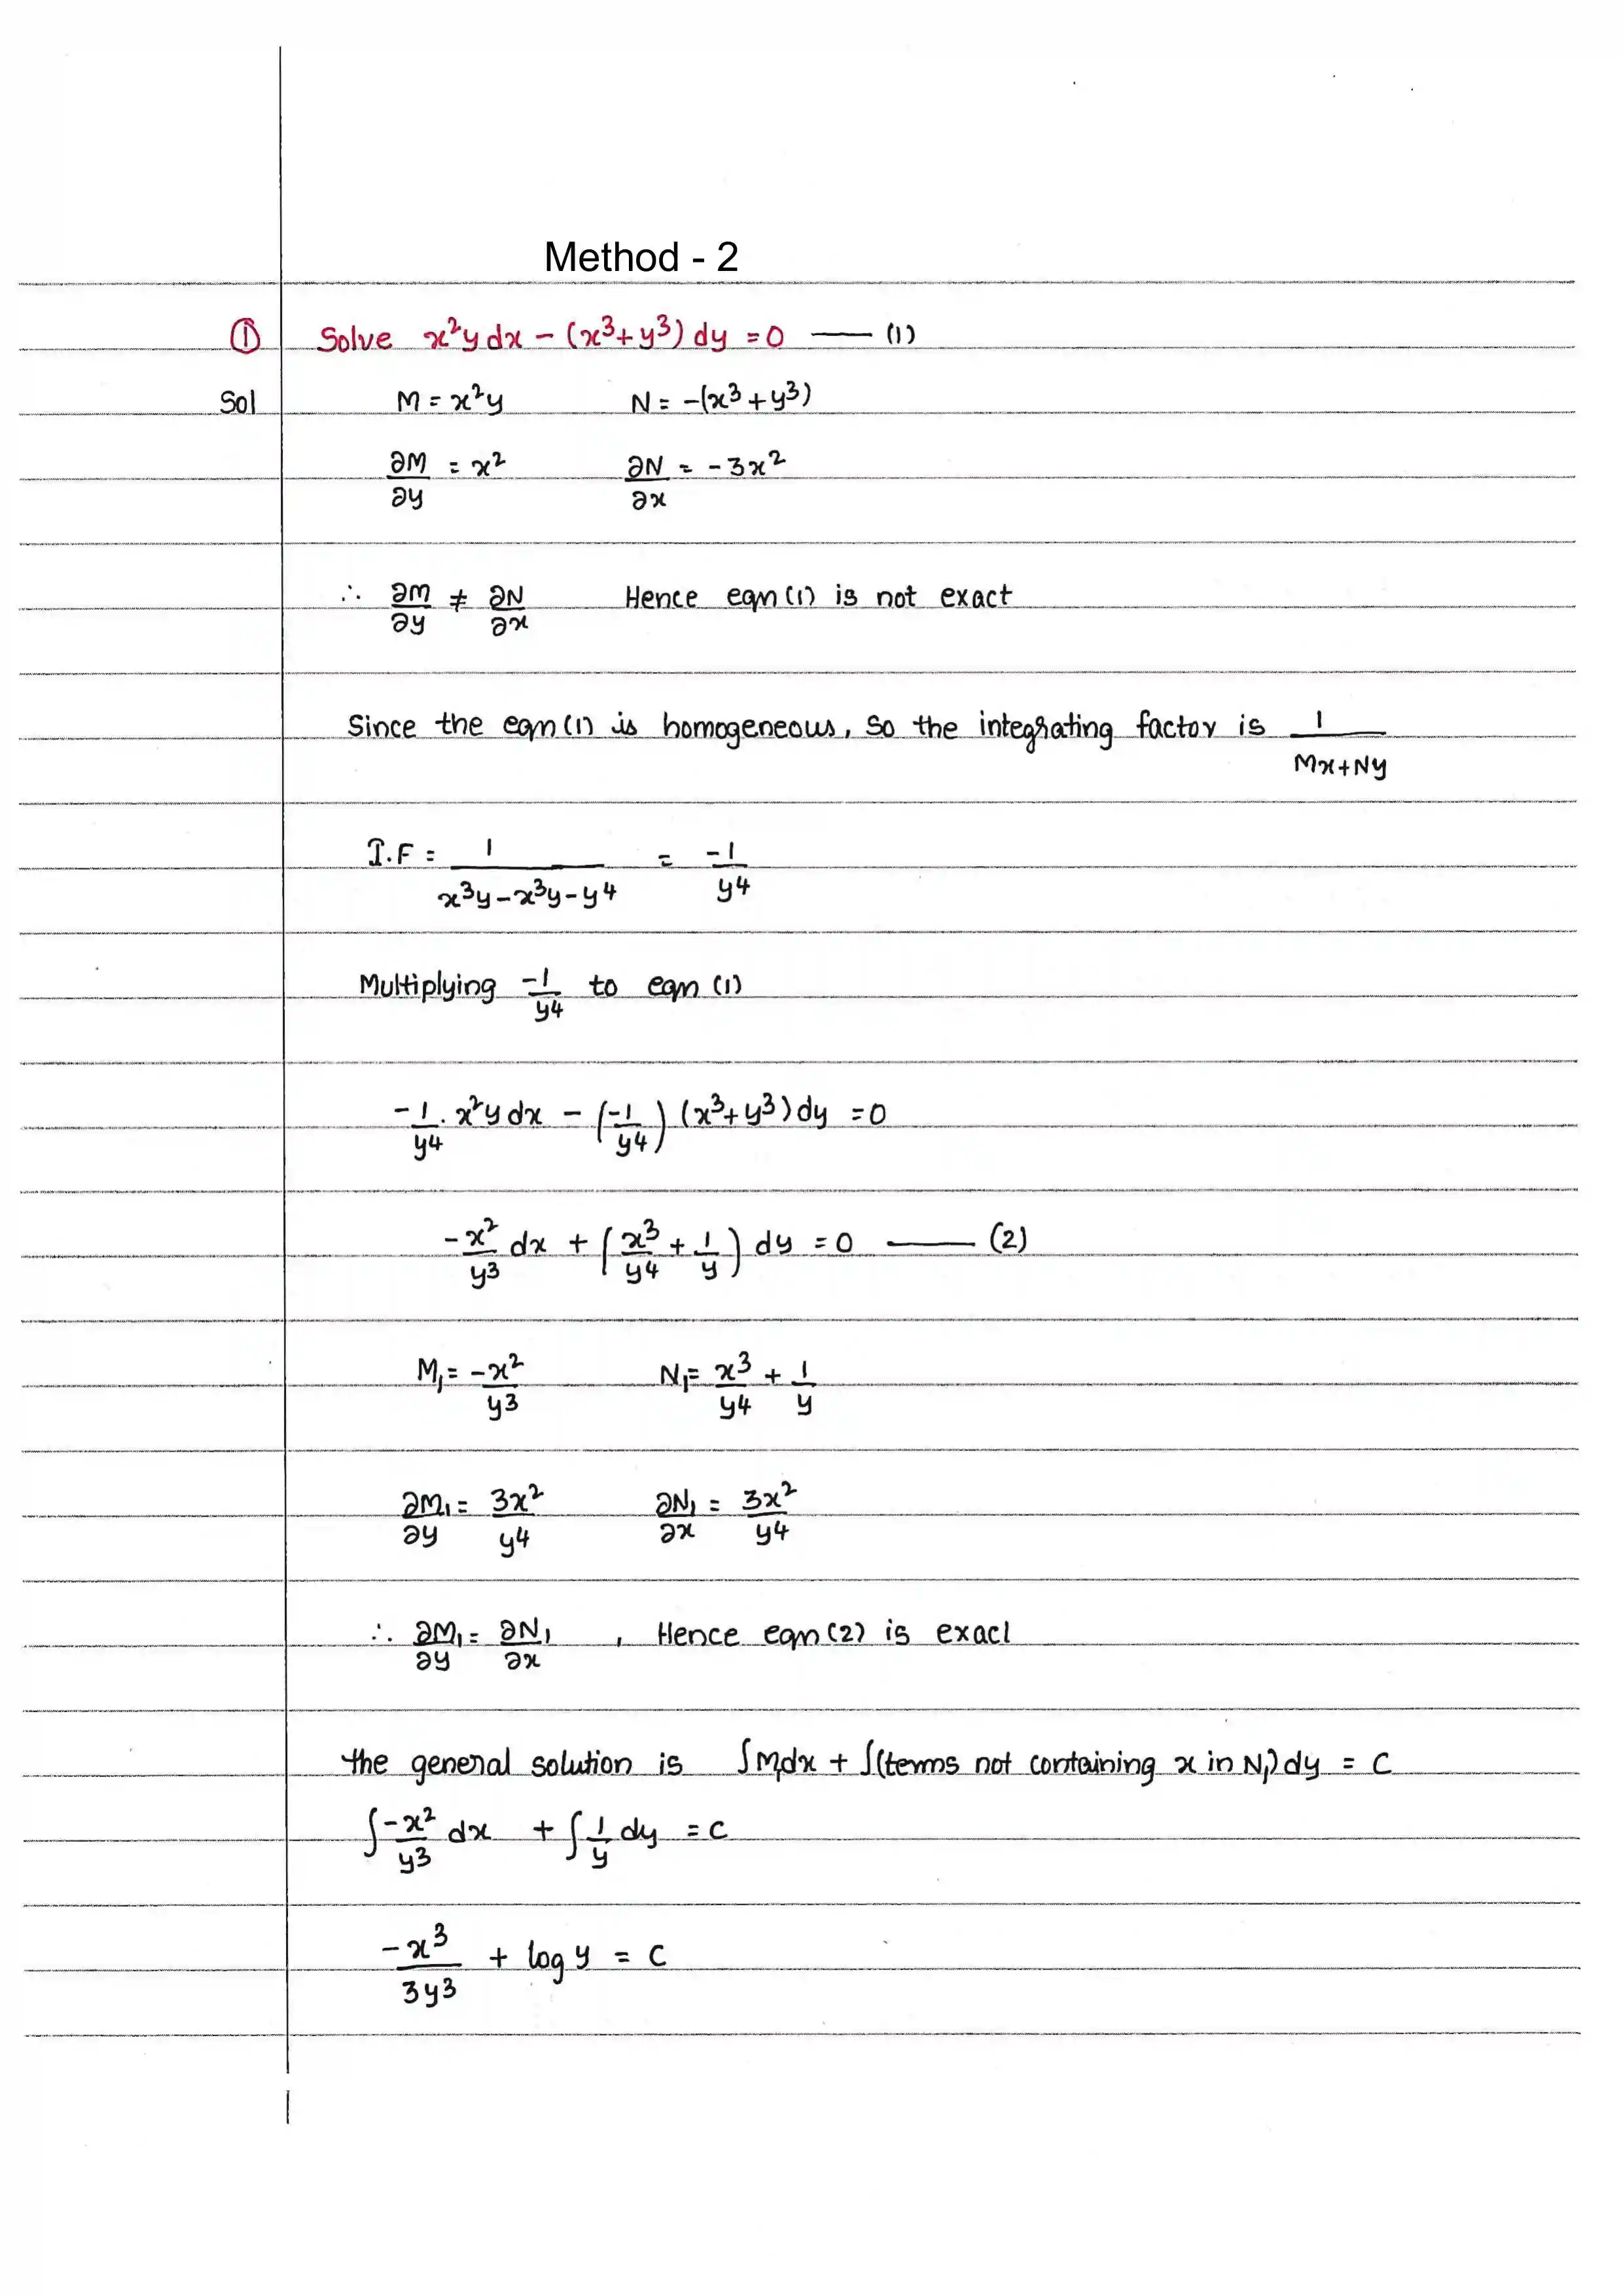 Method - 2
① Solve x²y dx - (x³+y³) dy = 0 —— (1)
Sol M = x²y N = -(x³+y³)
∂M/∂y = x² ∂N/∂x = -3x²
∴ ∂M/∂y ≠ ∂N/∂x Hence eqn (1) is not exact
Since the eqn (1) is homogeneous, So the integrating factor is 1/(Mx+Ny)
I.F = 1/(x³y-x³y-y⁴) = -1/y⁴
Multiplying -1/y⁴ to eqn (1)
-1/y⁴ . x²y dx - (-1/y⁴) (x³+y³) dy = 0
-x²/y³ dx + (x³/y⁴ + 1/y) dy = 0 —— (2)
M₁ = -x²/y³ N₁ = x³/y⁴ + 1/y
∂M₁/∂y = 3x²/y⁴ ∂N₁/∂x = 3x²/y⁴
∴ ∂M₁/∂y = ∂N₁/∂x , Hence eqn (2) is exact
the general solution is ∫M₁dx + ∫(terms not containing x in N₁) dy = C
∫-x²/y³ dx + ∫1/y dy = C
-x³/3y³ + log y = C